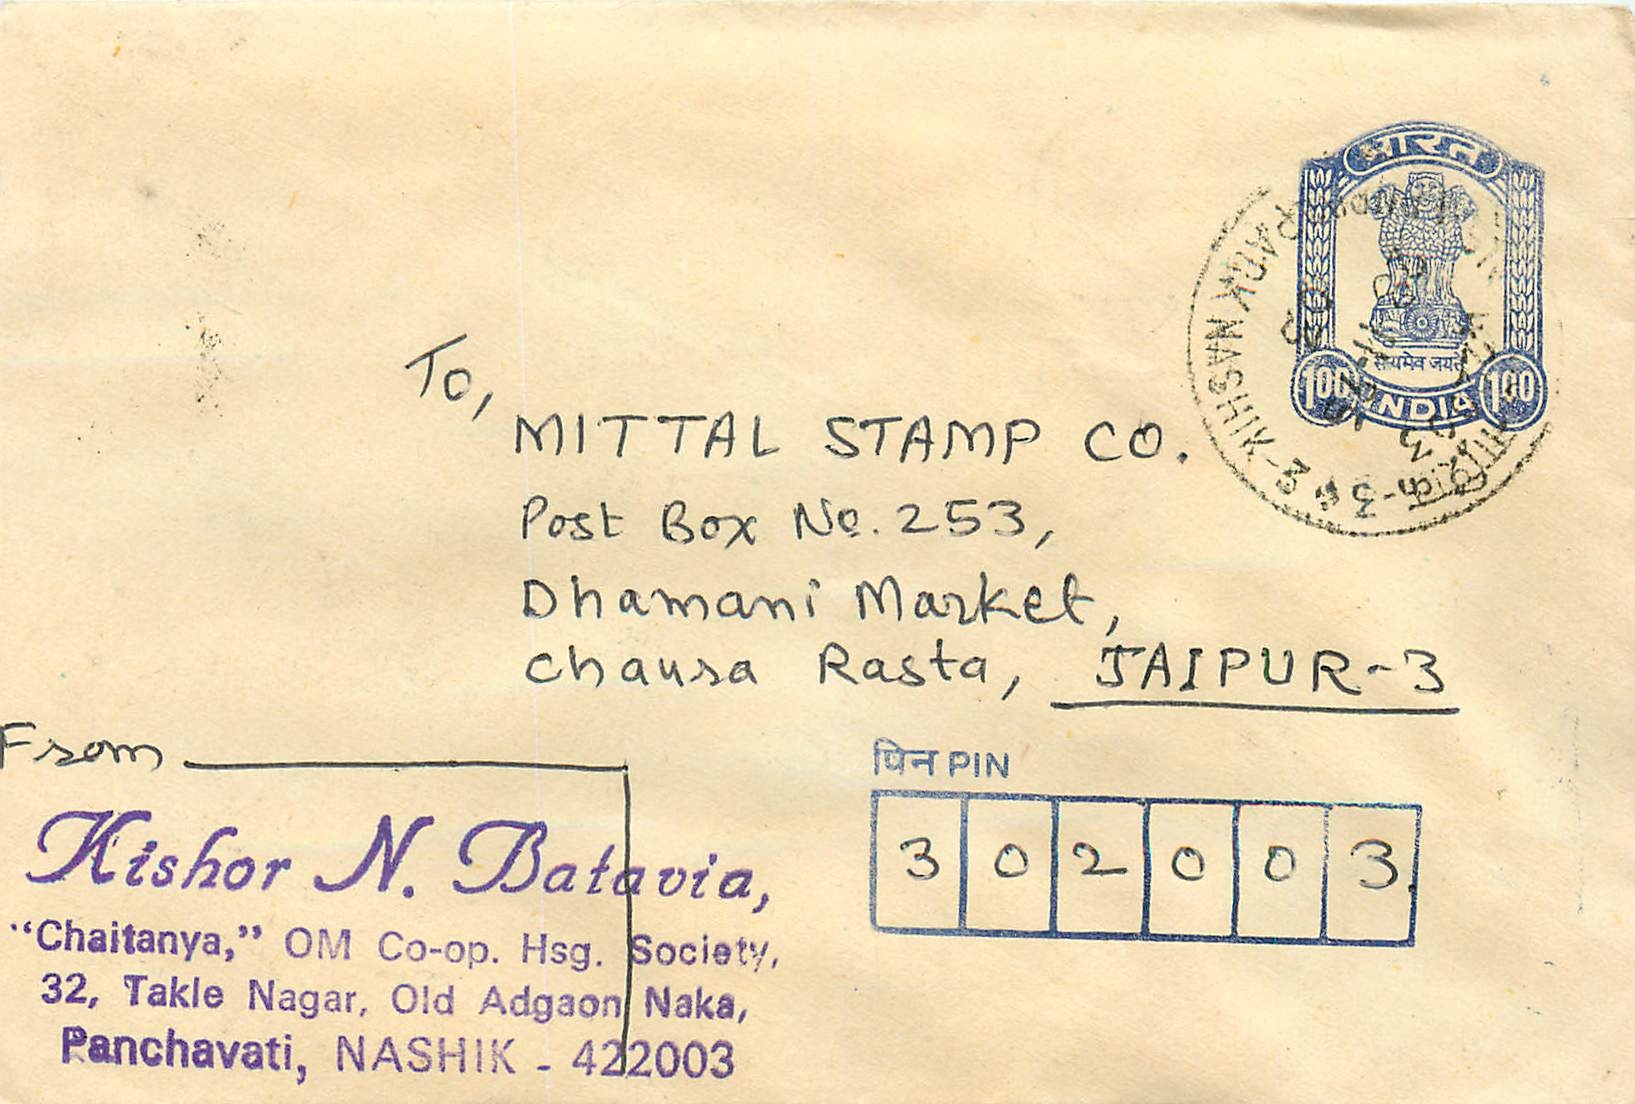 भारत
सत्यमेव जयते
100 INDIA 100
NASHIK-2
To,
MITTAL STAMP CO.
Post Box No. 253,
Dhamani Market,
Chausa Rasta, JAIPUR-3
From
पिन PIN
302003
Kishor N. Batavia,
"Chaitanya," OM Co-op. Hsg. Society,
32, Takle Nagar, Old Adgaon Naka,
Panchavati, NASHIK - 422003